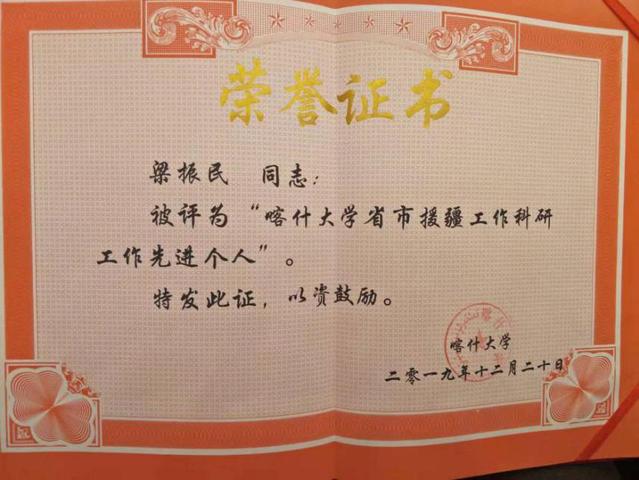 荣誉证书
梁振民 同志：
被评为“喀什大学省市援疆工作科研
工作先进个人”。
特发此证，以资鼓励。
喀什大学
二零一九年十二月二十日